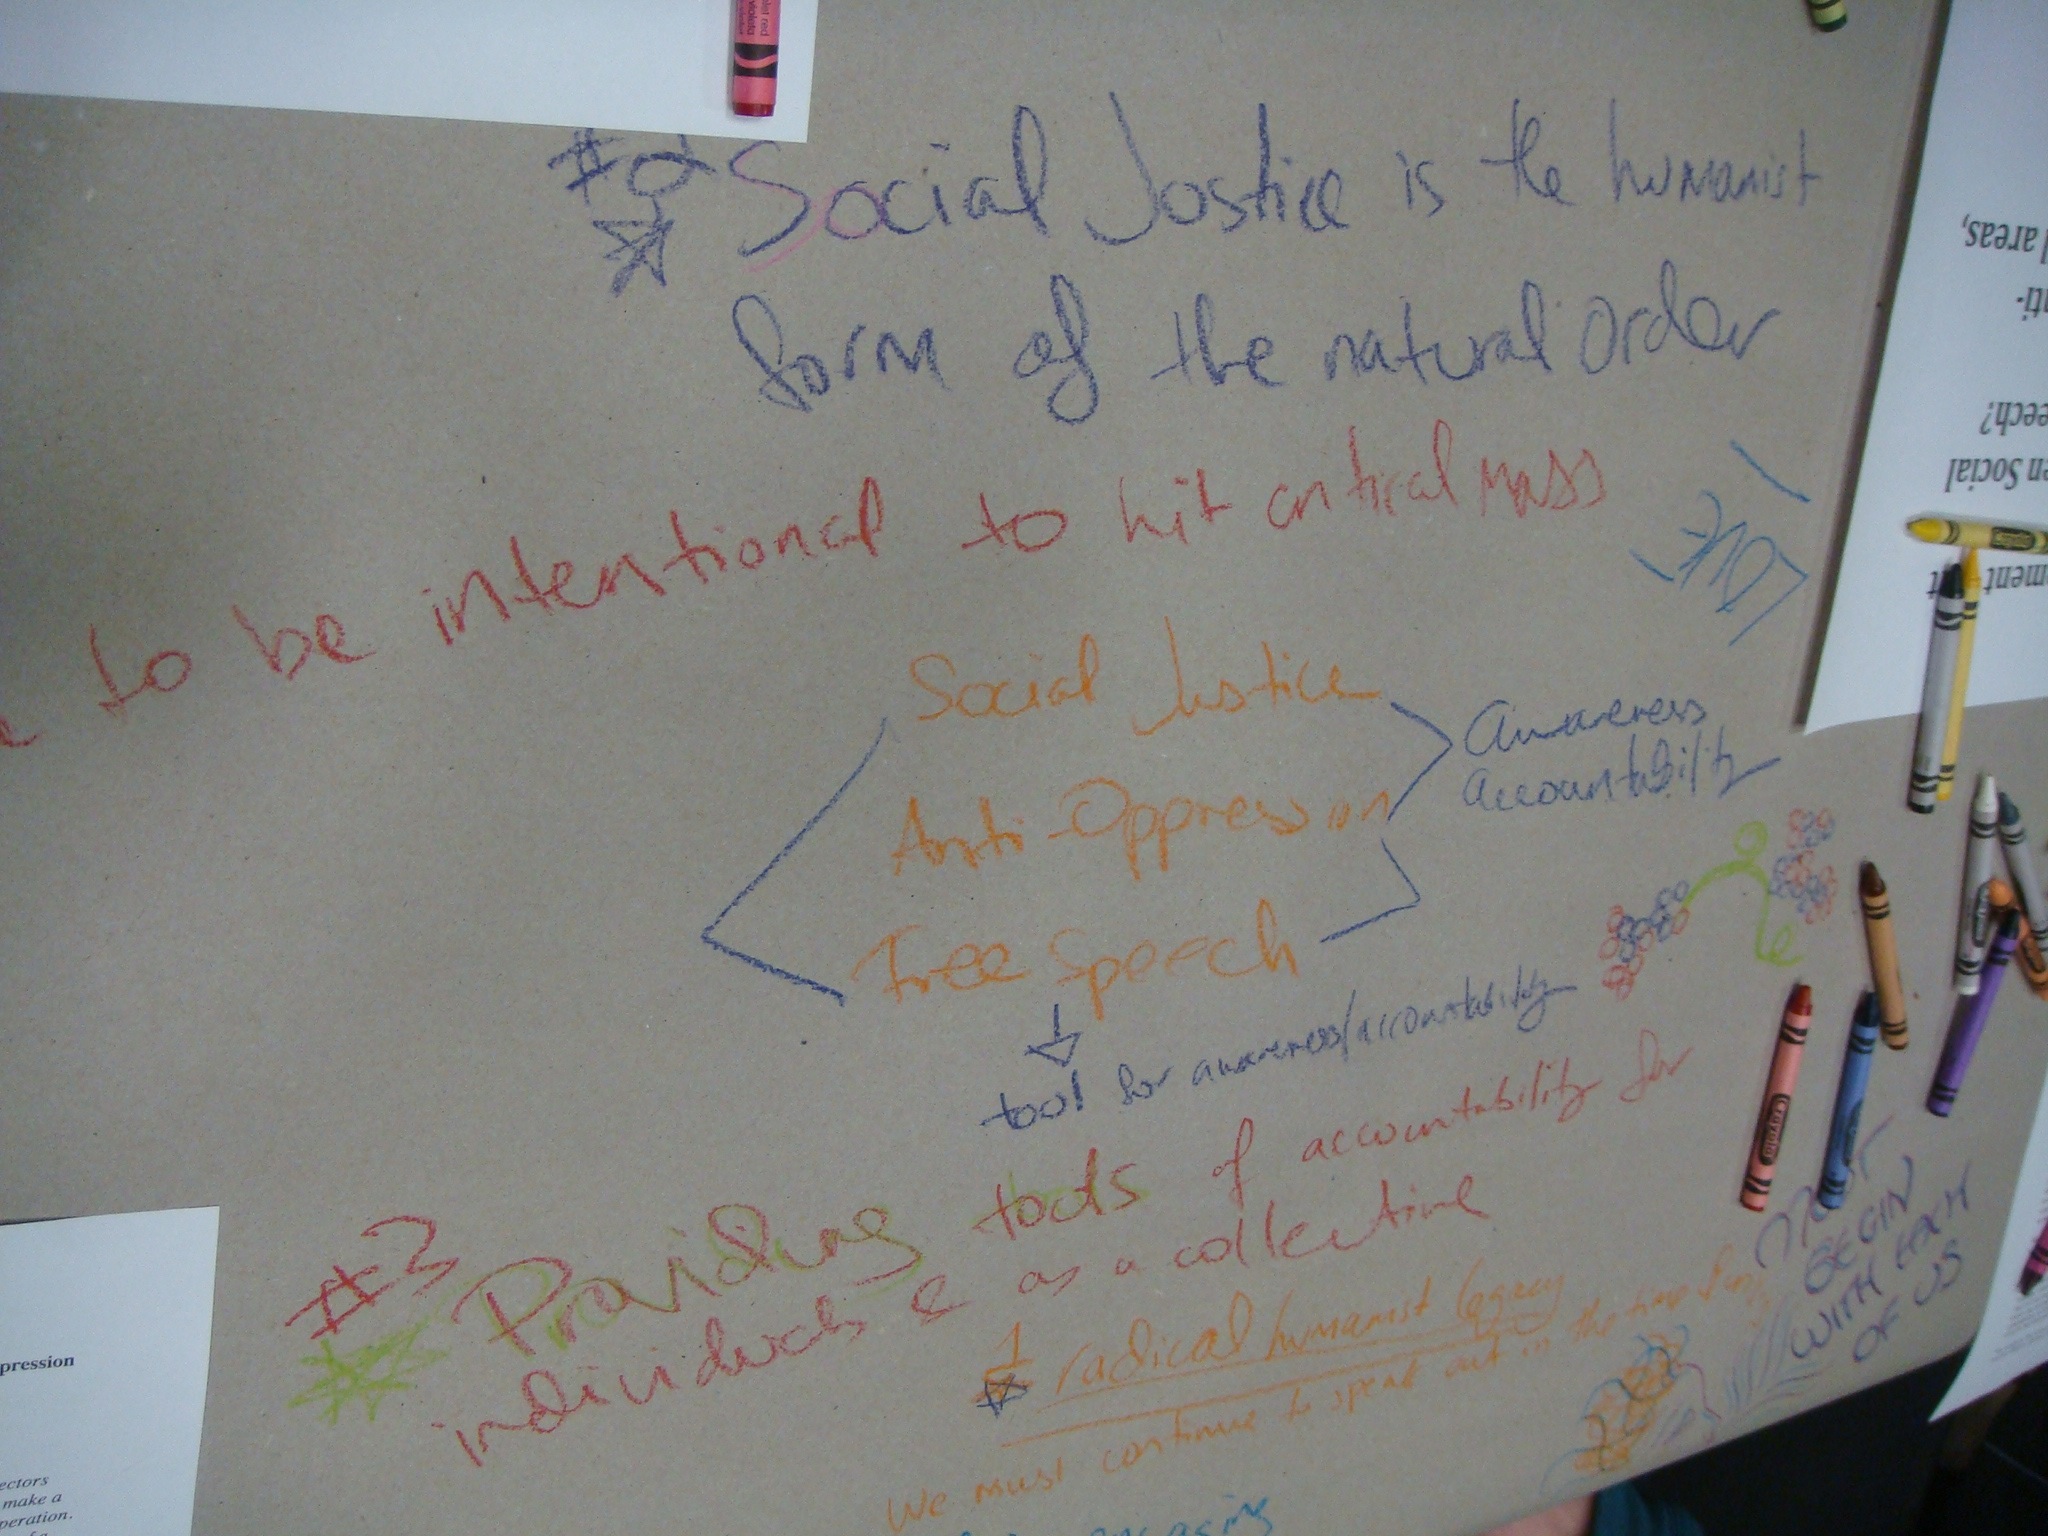 #2 Social Justice is the humanist
form of the natural order
to be intentional to hit critical mass
LOVE
Social Justice
Anti-Oppression
Free Speech
Awareness
accountability
tool for awareness/accountability
#3 Providing tools of accountability for
individuals & as a collective
1 radical humanist legacy
We must continue to speak out in the
MUST
BEGIN
WITH EACH
OF US
areas,
nti-
eech?
en Social
ement
pression
ectors
make a
peration.
crayola